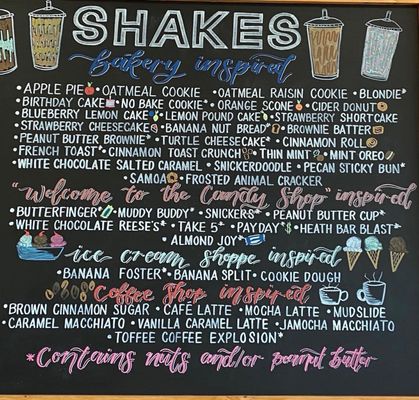 SHAKES
bakery inspired
•APPLE PIE •OATMEAL COOKIE •OATMEAL RAISIN COOKIE •BLONDIE*
BIRTHDAY CAKE •NO BAKE COOKIE* •ORANGE SCONE •CIDER DONUT
•BLUEBERRY LEMON CAKE •LEMON POUND CAKE •STRAWBERRY SHORTCAKE
•STRAWBERRY CHEESECAKE •BANANA NUT BREAD* •BROWNIE BATTER
•PEANUT BUTTER BROWNIE* •TURTLE CHEESECAKE* •CINNAMON ROLL
•FRENCH TOAST •CINNAMON TOAST CRUNCH •THIN MINT •MINT OREO
•WHITE CHOCOLATE SALTED CARAMEL •SNICKERDOODLE •PECAN STICKY BUN*
SAMOA •FROSTED ANIMAL CRACKER
"Welcome to the Comedy Shop" inspired
•BUTTERFINGER* •MUDDY BUDDY* •SNICKERS* •PEANUT BUTTER CUP*
•WHITE CHOCOLATE REESE'S* •TAKE 5* •PAYDAY* •HEATH BAR BLAST*
•ALMOND JOY*
ice cream shoppe inspired
•BANANA FOSTER* •BANANA SPLIT •COOKIE DOUGH
Coffee Shop inspired
•BROWN CINNAMON SUGAR •CAFÉ LATTE •MOCHA LATTE •MUDSLIDE
•CARAMEL MACCHIATO •VANILLA CARAMEL LATTE •JAMOCHA MACCHIATO
•TOFFEE COFFEE EXPLOSION*
*Contains nuts and/or peanut butter